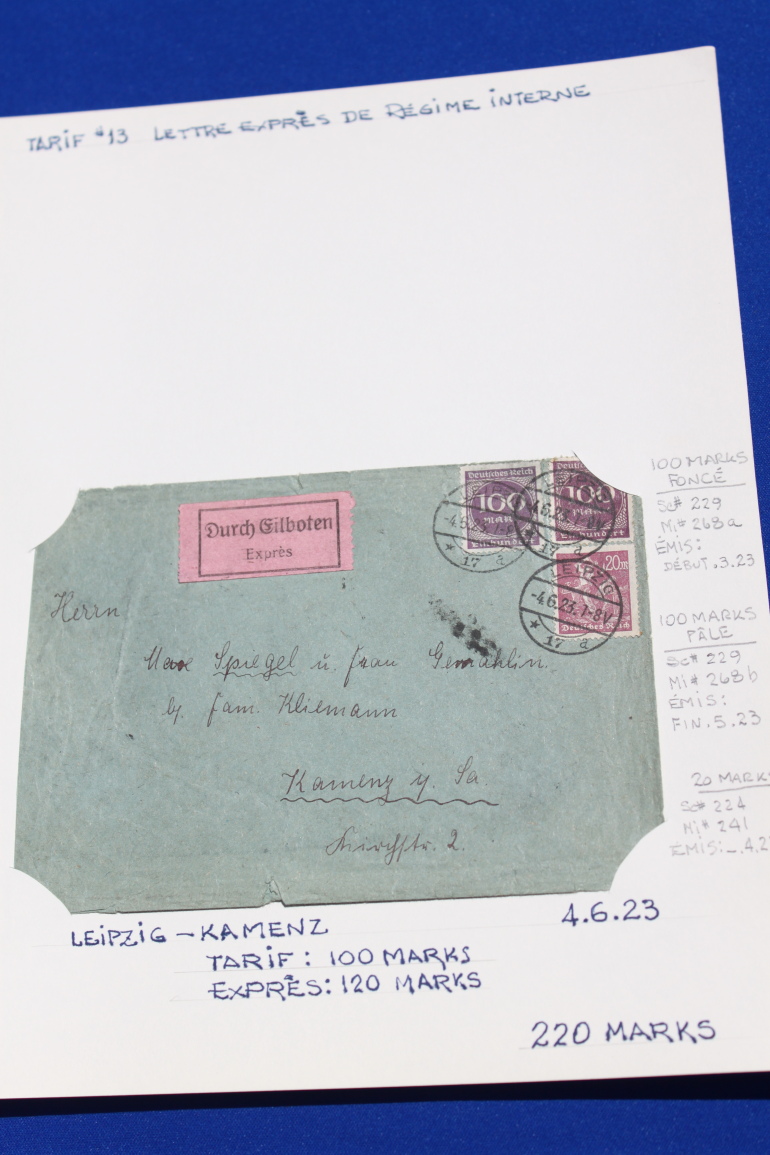 TARIF #13 LETTRE EXPRÈS DE RÉGIME INTERNE
Deutsches Reich
100
MARK
Einhundert
Deutsches
100
MARK
Einhundert
20
Deutsches Reich
-4.6.23. 7-8V
* 17 a
LEIPZIG
-4.6.23. 7-8V
* 17 a
Durch Eilboten
Exprès
Herrn
Max Spiegel u. Frau Gemahlin.
b. Fam. Kliemann
Kamenz i. Sa.
Kirchstr. 2.
100 MARKS
FONCÉ
Sc# 229
Mi# 268a
ÉMIS:
DÉBUT.3.23
100 MARKS
PÂLE
Sc# 229
Mi# 268b
ÉMIS:
FIN.5.23
20 MARKS
Sc# 224
Mi# 241
ÉMIS:_.4.2
LEIPZIG – KAMENZ
4.6.23
TARIF: 100 MARKS
EXPRÈS: 120 MARKS
220 MARKS